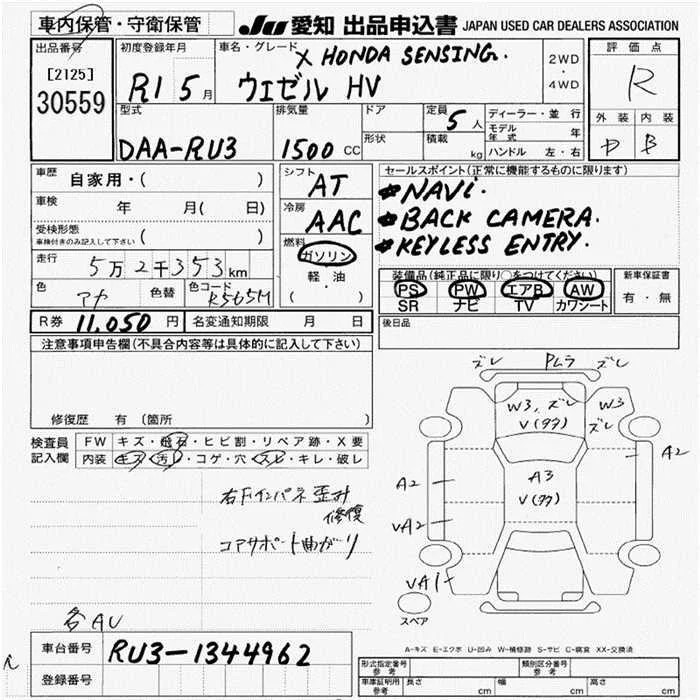 車内保管・守衛保管
JU 愛知 出品申込書 JAPAN USED CAR DEALERS ASSOCIATION
出品番号
[2125]
30559
初度登録年月
R1 5月
車名・グレード
X HONDA SENSING.
ヴェゼル HV
2WD
・
4WD
評価点
R
外装 内装
D B
型式
DAA-RU3
排気量
1500 CC
ドア
形状
定員
5人
積載
kg
ディーラー・並行
モデル年式 年
ハンドル 左・右
車歴
自家用・( )
車検
年 月( 日)
受検形態
車検付きのみ記入して下さい ( )
走行
5万2千353km
色
アヤ
色替
色コード
R565M
シフト
AT
冷房
AAC
燃料
ガソリン
軽・油
( ・ )
セールスポイント(正常に機能するものに限ります)
NAVi.
BACK CAMERA.
KEYLESS ENTRY.
装備品(純正品に限り○をつけてください)
PS PW エアB AW
SR ナビ TV カワシート
新車保証書
有・無
R券 11,050円
名変通知期限 月 日
後日品
注意事項申告欄(不具合内容等は具体的に記入して下さい)
修復歴 有 〔箇所
検査員
記入欄
FW キズ・飛石・ヒビ割・リペア跡・X要
内装 キズ・汚レ・コゲ・穴・スレ・キレ・破レ
右Fインパネ歪み
修復
コアサポート曲がり
各AU
ズレ Pムラ ズレ
W3,ズレ
V(タタ)
W3
ズレ
A2
A3
V(タタ)
A2
VA2
VA1
スペア
A-キズ E-エクボ U-凹み W-補修跡 S-サビ C-腐食 XX-交換済
車台番号
RU3-1344962
登録番号
形式指定番号
参考
類別区分番号
参考
車庫証明用
参考
長さ cm
幅 cm
高さ cm